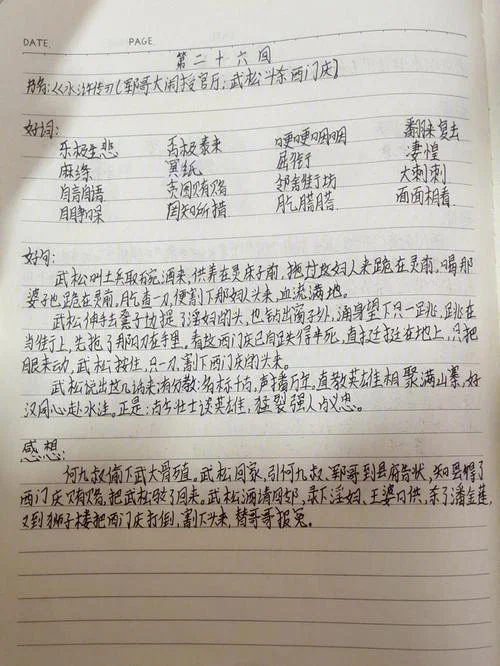 DATE. PAGE.
第二十六回
书名:《水浒传》【郓哥大闹授官厅;武松斗杀西门庆】
好词:
乐极生悲 否极泰来 哽哽咽咽 翻来复去
麻绦 冥纸 凄惶
自言自语 贪图贿赂 邻舍街坊 大剌剌
目睁口呆 罔知所措 肐肐𦞂𦞂 面面相看
好句:
武松叫土兵取碗酒来,供养在灵床子前,拖过这妇人来跪在灵前,喝那
婆子也跪在灵前,肐查一刀,便割下那妇人头来,血流满地。
武松伸手去凳子边提了淫妇的头,也钻出窗子外,涌身望下只一跳,跳在
当街上,先抢了那口刀在手里,看这西门庆已自跌得半死,直挺挺在地上,只把
眼来动,武松按住,只一刀,割下西门庆的头来。
武松说出这几句话来,有分教:名标千古,声播万年,直教英雄相聚满山寨,好
汉同心赴水洼。正是:古今壮士谈英雄,猛裂强人占义忠。
感想:
何九叔偷下武大骨殖。武松回家,引何九叔、郓哥到县府告状,知县得了
西门庆贿赂,把武松驳了回来。武松酒请四邻,录下淫妇、王婆口供,杀了潘金莲,
又到狮子楼把西门庆打倒,割下头来,替哥哥报冤。